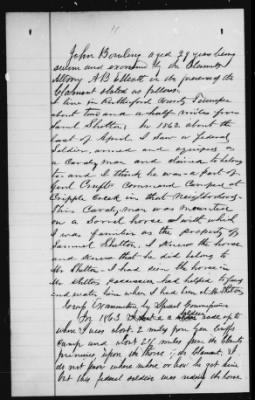 John Bowling aged 28 years being
sworn and examined by the Claimants
Attorney A B Elliott in the presence of the
Claimant stated as follows
I live in Rutherford County Tennessee
about two and a half miles from
Saml Shelton. In 1863 about the
last of April I saw a Federal
Soldier, armed and equipped as
a Cavalry man and claimed to belong
to and I think he was a part of
Genl Crufts Command Camped at
Cripple Creek in that Neighborhood
This Cavalry man was mounted
on a Sorrel horse with which
I was familiar as the property of
Samuel Shelton. I knew the horse
and knew that he did belong to
Mr Shelton. I had seen the horse in
Mr Sheltons possession had helped
and water him when I lived at Mr Sheltons
Cross Examination by Special Commissioner
1863 a soldier rode up to
where I was about 2 miles from Gen Crufts
Camp and about 2½ miles from the
premises, upon the horse of claimant. I
do not know where or how he got him
but this federal soldier was riding the horse